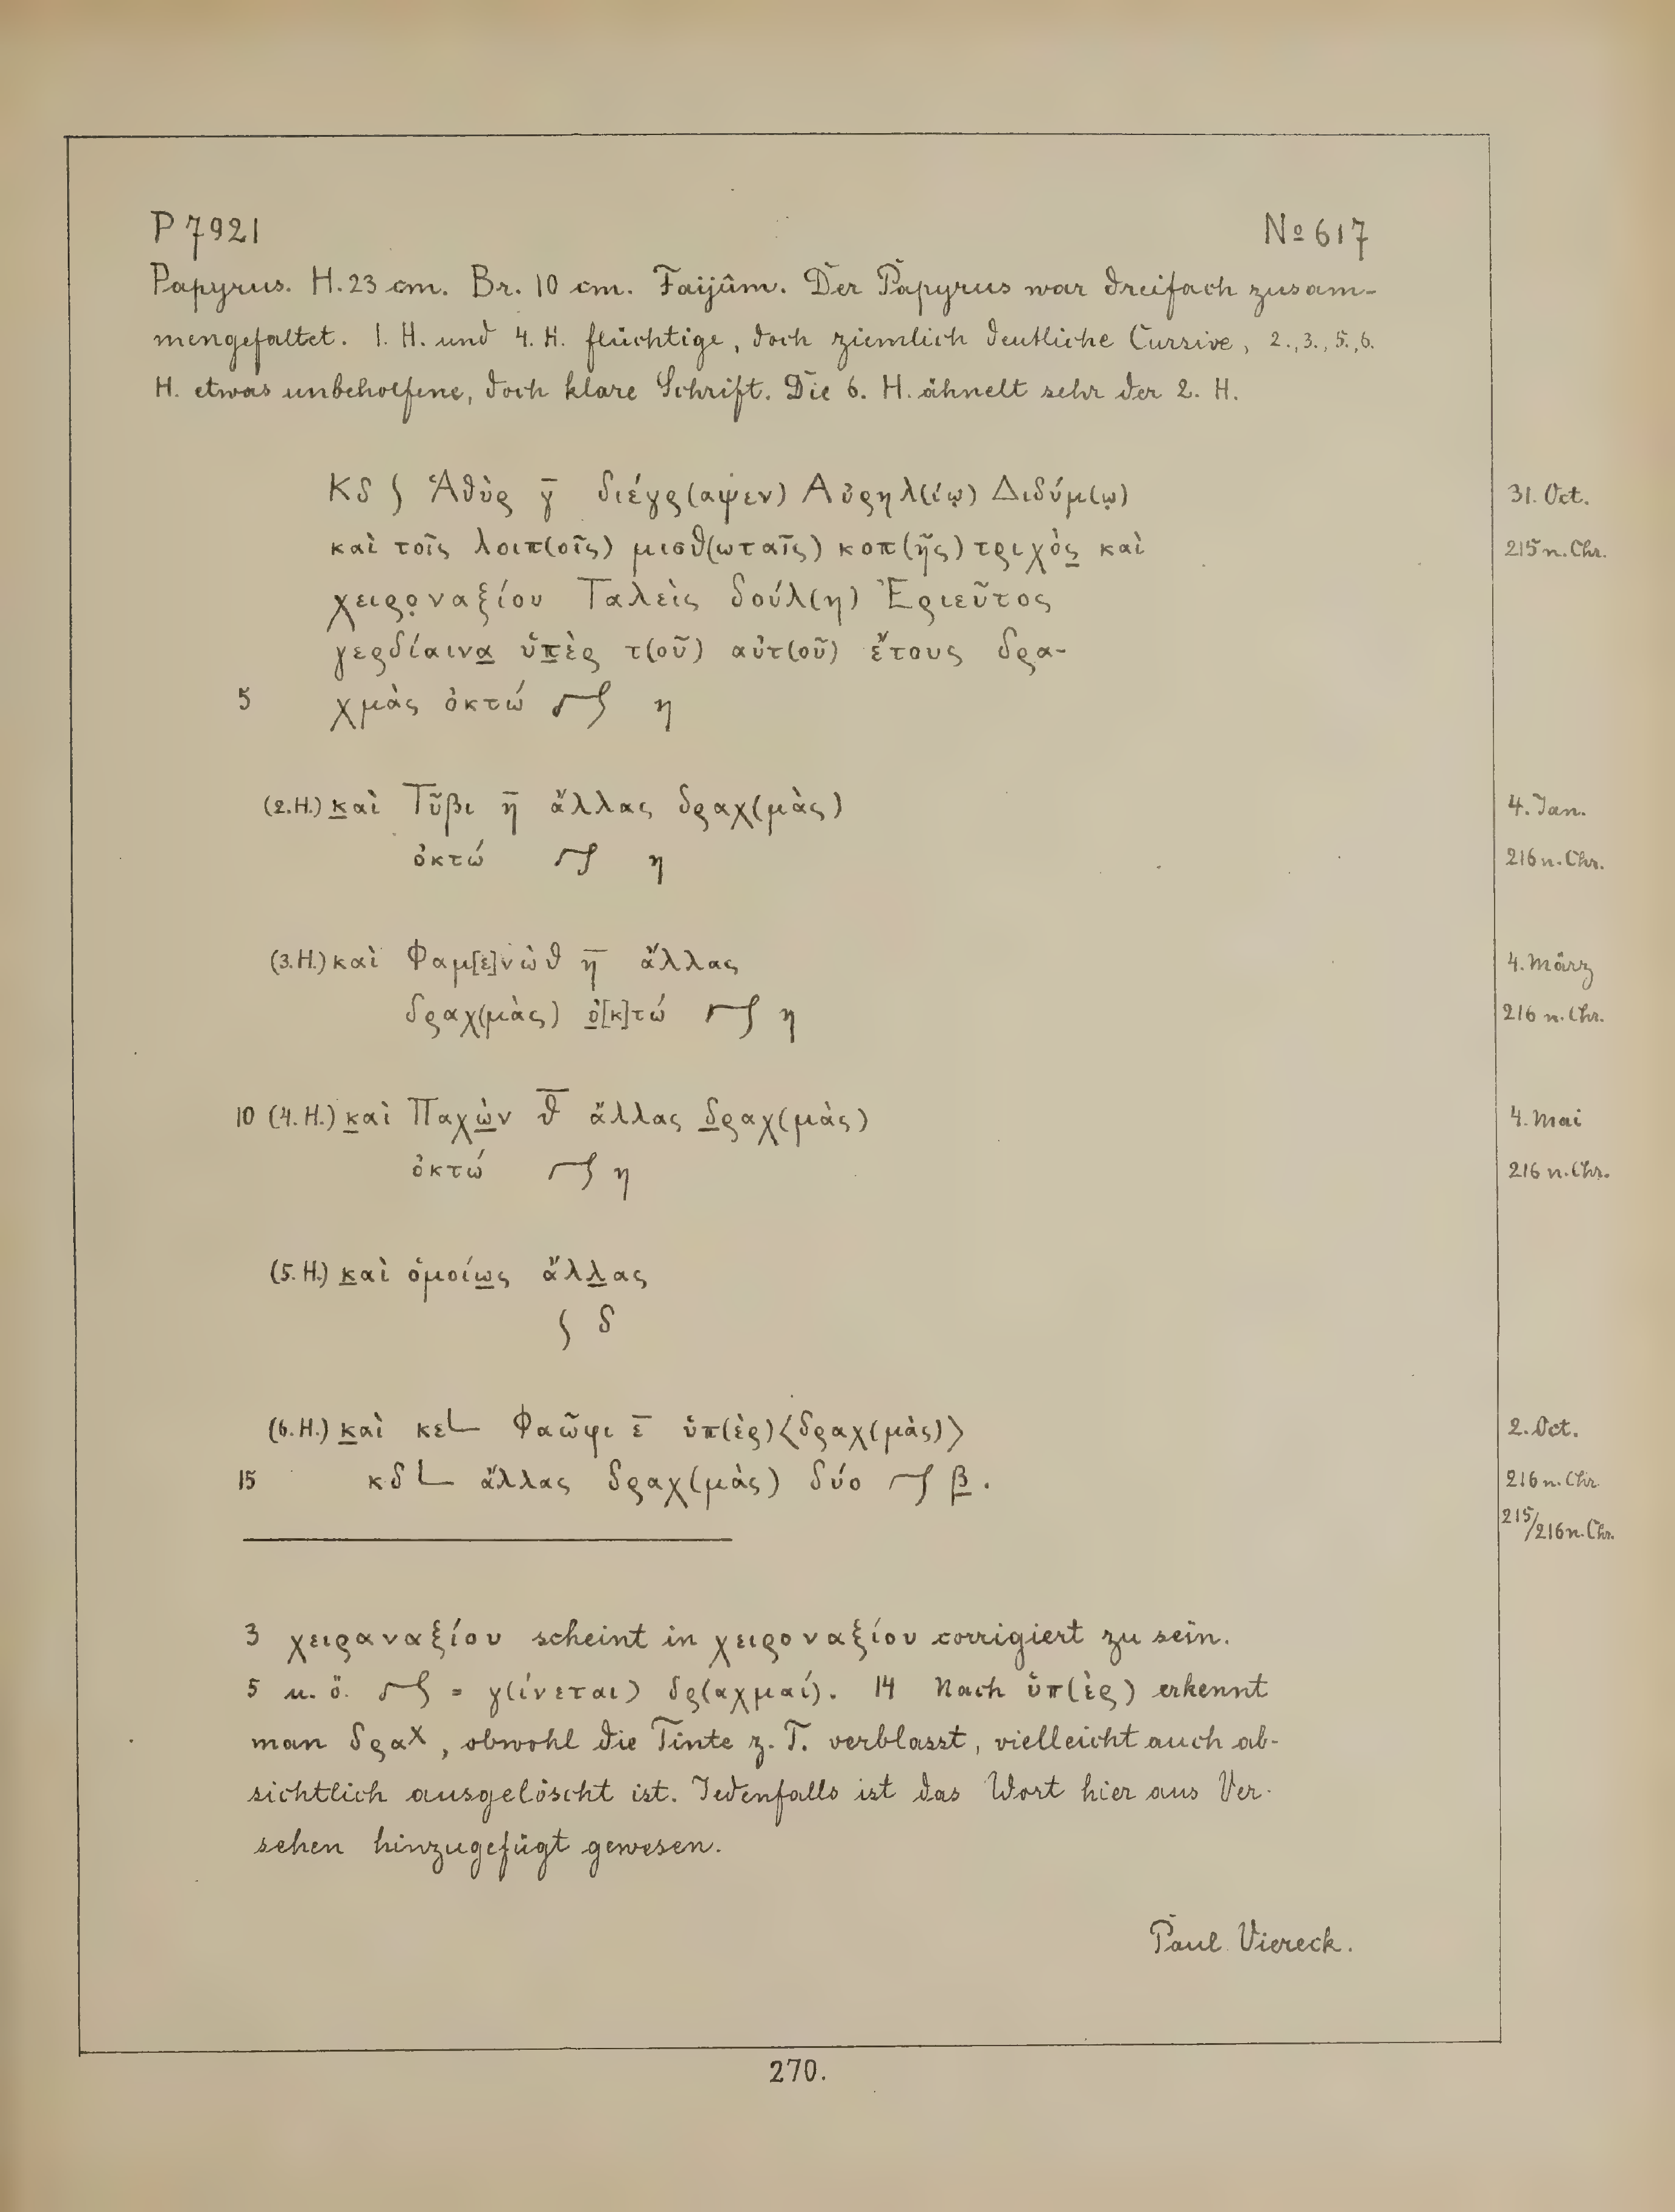 P 7921 № 617
Papyrus. H. 23 cm. Br. 10 cm. Faijûm. Der Papyrus war dreifach zusam-
mengefaltet. 1. H. und 4. H. flüchtige, doch ziemlich deutliche Cursive, 2., 3., 5., 6.
H. etwas unbeholfene, doch klare Schrift. Die 6. H. ähnelt sehr der 2. H.
Κδ ʃ Ἁθὺρ γ̅ διέγρ(αψεν) Αὐρηλ(ίῳ) Διδύμ(ῳ) 31. Oct.
καὶ τοῖς λοιπ(οῖς) μισθ(ωταῖς) κοπ(ῆς) τριχὸς̲ καὶ 215 n. Chr.
χειρο̣ναξίου Ταλεὶς δούλ(η) Ἐριεῦτος
γερδίαινα̲ ὑπ̲ὲρ τ(οῦ) αὐτ(οῦ) ἔτους δρα-
5 χμὰς ὀκτώ ┌ʃ η
(2. H.) κ̲αὶ Τῦβι η̅ ἄλλας δραχ(μὰς) 4. Jan.
ὀκτώ ┌ʃ η 216 n. Chr.
(3. H.) καὶ Φαμ[ε]νὼθ η̅ ἄλλας 4. März
δραχ(μὰς) ὀ̲[κ]τώ ┌ʃ η 216 n. Chr.
10 (4. H.) κ̲αὶ Παχὼ̲ν θ̅ ἄλλας δ̲ραχ(μὰς) 4. Mai
ὀκτώ ┌ʃ η 216 n. Chr.
(5. H.) κ̲αὶ ὁμοίω̲ς ἄλλ̲ας
ʃ δ
(6. H.) κ̲αὶ κε∟ Φαῶφι ε̅ ὑπ(ὲρ) 〈δραχ(μὰς)〉 2. Oct.
15 κδ∟ ἄλλας δραχ(μὰς) δύο ┌ʃ β̲. 216 n. Chr.
215/216 n. Chr.
3 χειραναξίου scheint in χειροναξίου corrigiert zu sein.
5 u. ö. ┌ʃ = γ(ίνεται) δρ(αχμαί). 14 Nach ὑπ(ὲρ) erkennt
man δραχ, obwohl die Tinte z. T. verblasst, vielleicht auch ab-
sichtlich ausgelöscht ist. Jedenfalls ist das Wort hier aus Ver-
sehen hinzugefügt gewesen.
Paul Viereck.
270.